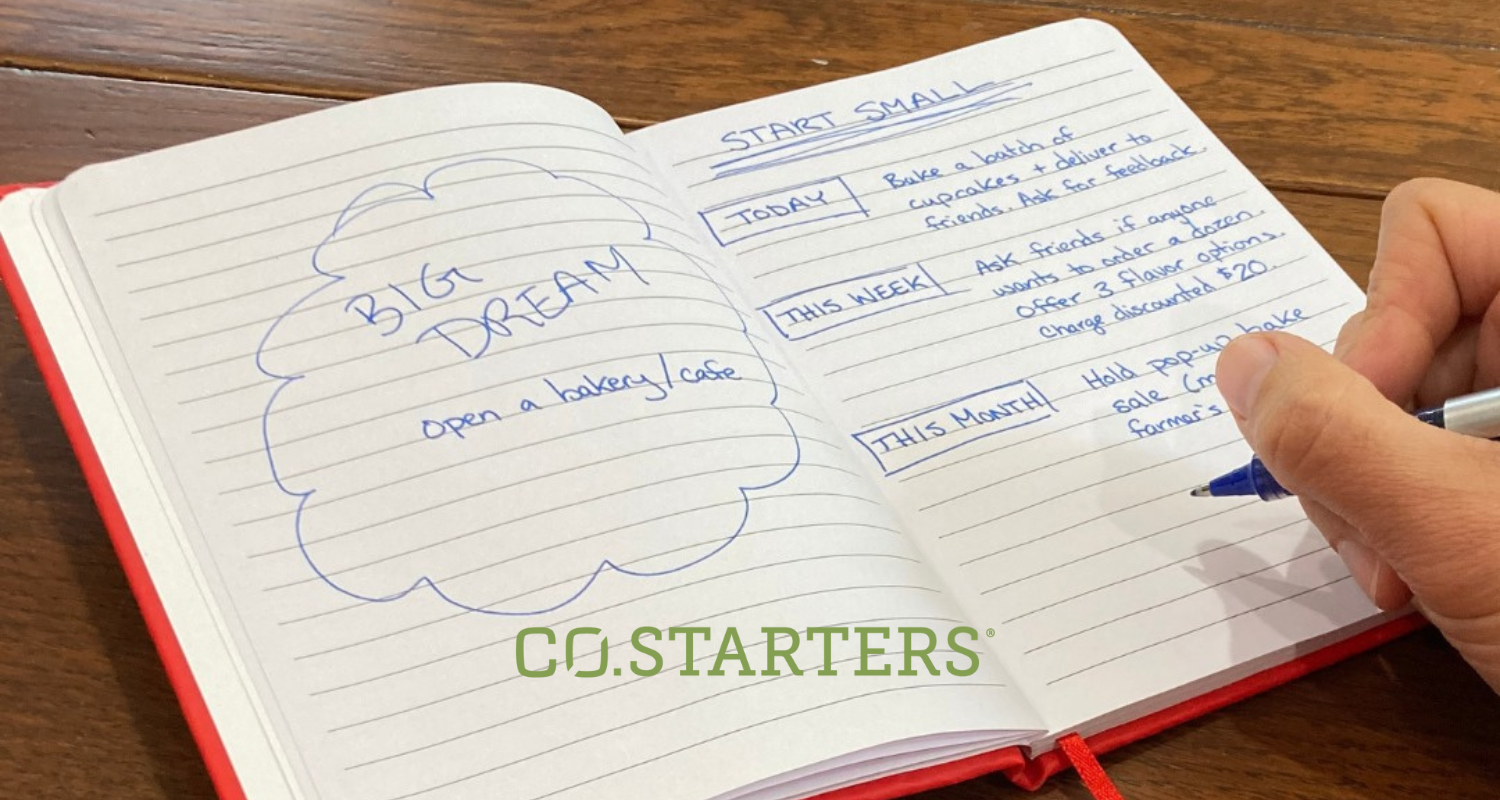 BIG
DREAM
open a bakery/cafe
START SMALL
TODAY
Bake a batch of
cupcakes + deliver to
friends. Ask for feedback.
THIS WEEK
Ask friends if anyone
wants to order a dozen.
Offer 3 flavor options.
Charge discounted $20.
THIS MONTH
Hold pop-up bake
sale
farmer's
CO.STARTERS®